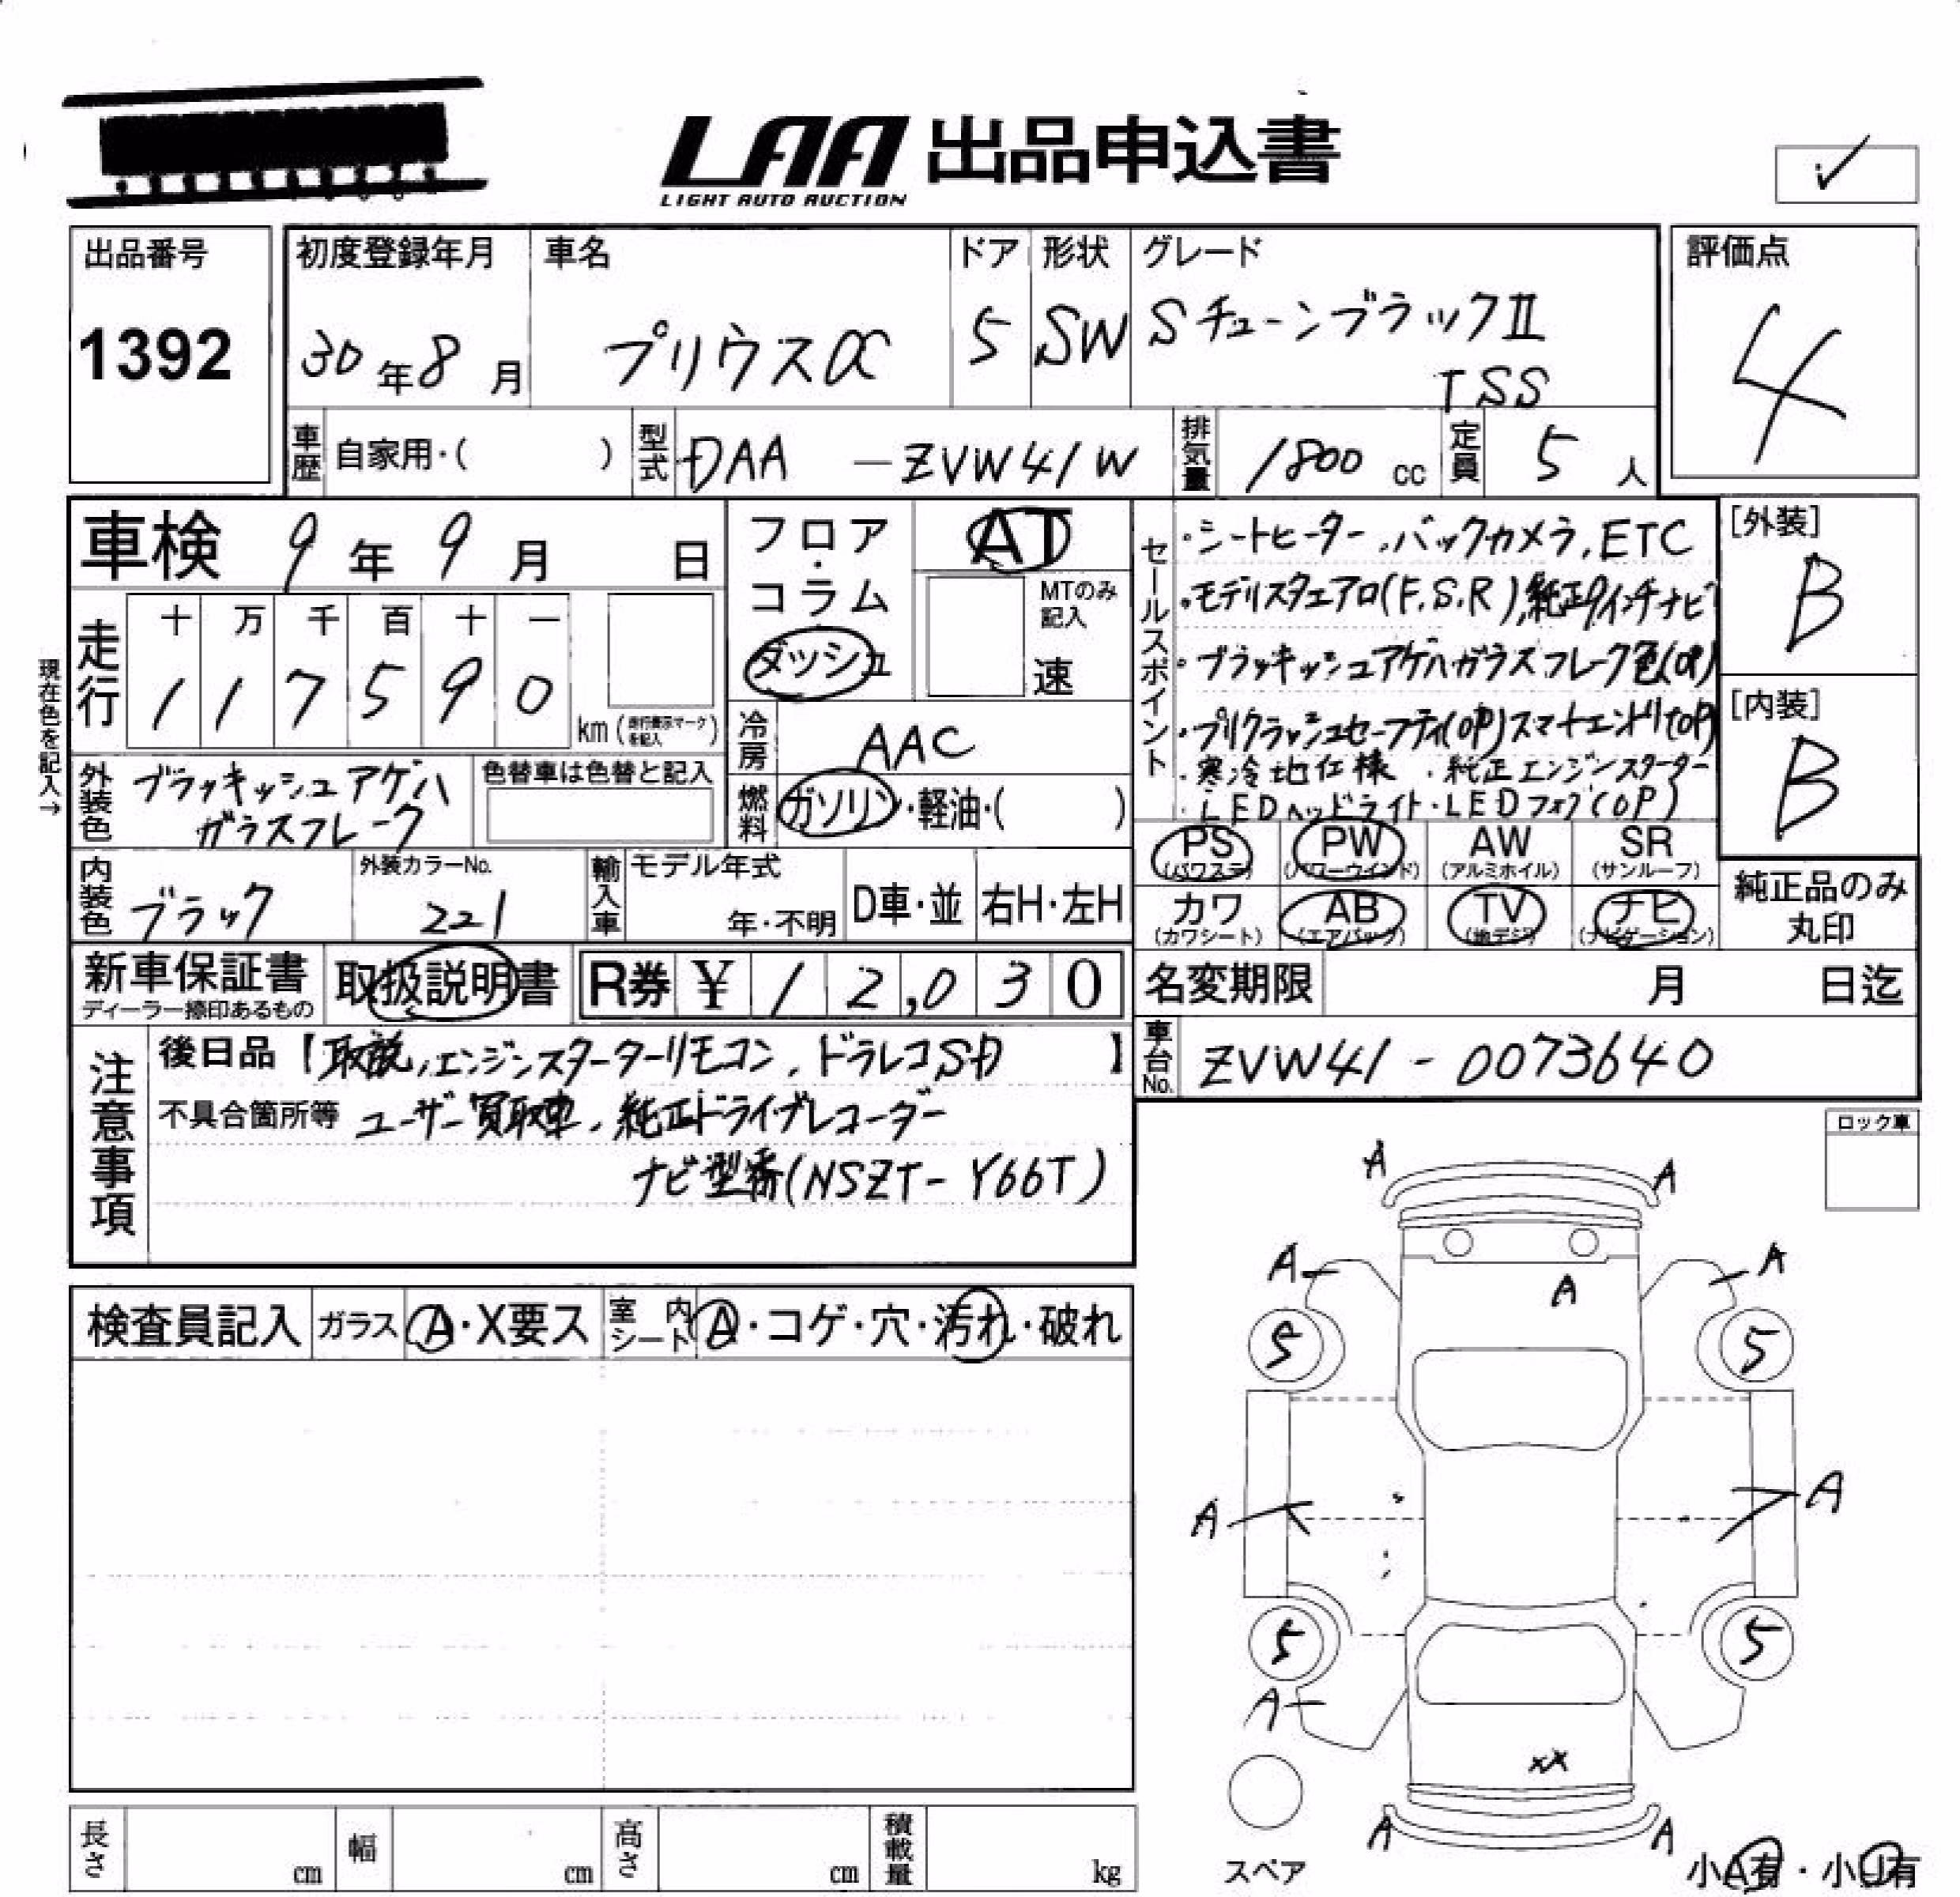 LAA 出品申込書
LIGHT AUTO AUCTION
✓
出品番号
1392
初度登録年月
30年8月
車名
プリウスα
ドア
5
形状
SW
グレード
SチューンブラックⅡ
TSS
評価点
4
車歴 自家用・( )
型式 DAA - ZVW41W
排気量 1800 cc
定員 5 人
車検 9年9月 日
フロア・コラム
ダッシュ
AT
MTのみ記入
速
走行
十 万 千 百 十 一
1 1 7 5 9 0
km (走行表示マークを記入)
現在色を記入→
冷房 AAC
外装色 ブラッキッシュアゲハ
ガラスフレーク
色替車は色替と記入
燃料 ガソリン・軽油・( )
内装色 ブラック
外装カラーNo.
221
輸入車
モデル年式
年・不明
D車・並
右H・左H
セールスポイント
・シートヒーター、バックカメラ、ETC
・モデリスタエアロ(F.S.R)、純正9インチナビ
・ブラッキッシュアゲハガラスフレーク色(OP)
・プリクラッシュセーフティ(OP)スマートエントリ(OP)
・寒冷地仕様 ・純正エンジンスターター
・LEDヘッドライト・LEDフォグ(OP)
[外装]
B
[内装]
B
PS (パワステ)
PW (パワーウインド)
AW (アルミホイル)
SR (サンルーフ)
カワ (カワシート)
AB (エアバック)
TV (地デジ)
ナビ (ナビゲーション)
純正品のみ丸印
新車保証書
ディーラー捺印あるもの
取扱説明書
R券 ¥ 12,030
名変期限 月 日迄
車台No. ZVW41-0073640
注意事項
後日品【取説、エンジンスターターリモコン、ドラレコSD】
不具合箇所等 ユーザー買取車、純正ドライブレコーダー
ナビ型番(NSZT-Y66T)
ロック車
検査員記入
ガラス A・X要ス
室内シート A・コゲ・穴・汚れ・破れ
A A
A A
A
5 5
A A
5 5
A
XX
A A
スペア
小A有・小U有
長さ cm
幅 cm
高さ cm
積載量 kg